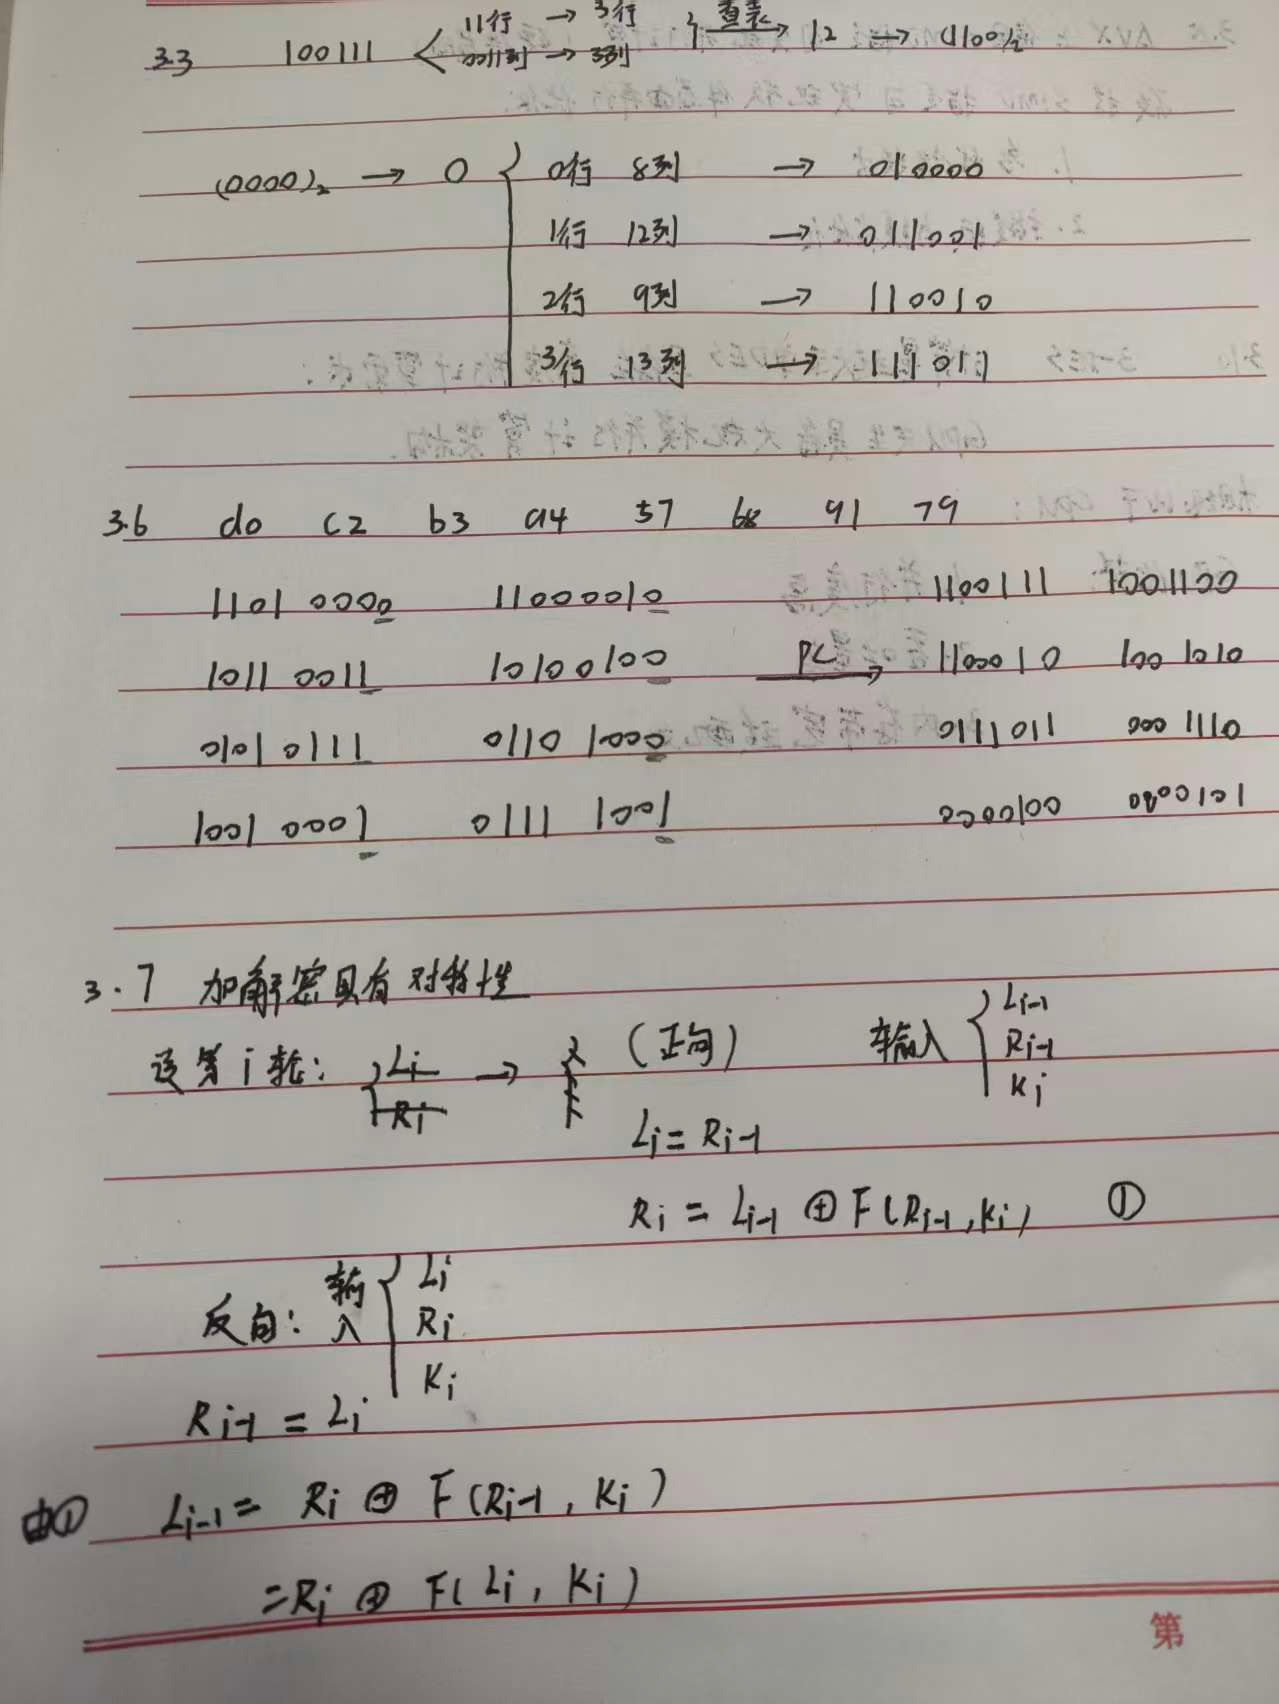 3.3 100111 { 11行 → 3行
0011列 → 3列 } 查表→ 12 → (1100)₂
(0000)₂ → 0 { 0行 8列 → 010000
1行 12列 → 011001
2行 9列 → 110010
3行 13列 → 111011
3.6 d0 c2 b3 a4 57 68 91 79
1101 0000 11000010 1100111 1001100
1011 0011 10100100 PC→ 1100010 1001010
0101 0111 0110 1000 0111011 0001110
1001 0001 0111 1001 0000100
3.7 加解密具有对称性
设第i轮: (正向) 输入 { Li-1
Ri-1
Ki
Li = Ri-1
Ri = Li-1 ⊕ F(Ri-1, Ki) ①
反向: 输入 { Li
Ri
Ki
Ri-1 = Li
由① Li-1 = Ri ⊕ F(Ri-1, Ki)
= Ri ⊕ F(Li, Ki)
第